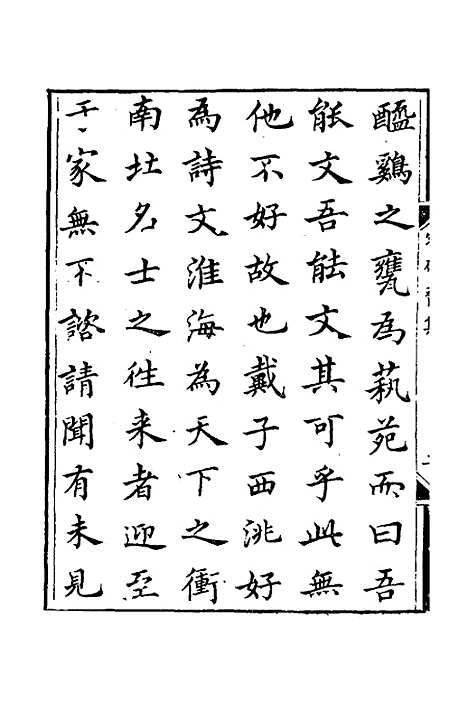 醯鷄之甕為蓺苑而曰吾
能文吾能文其可乎此無
他不好故也戴子西洮好
為詩文淮海為天下之衝
南北名士之徃来者迎至
于家無不諮請聞有未見